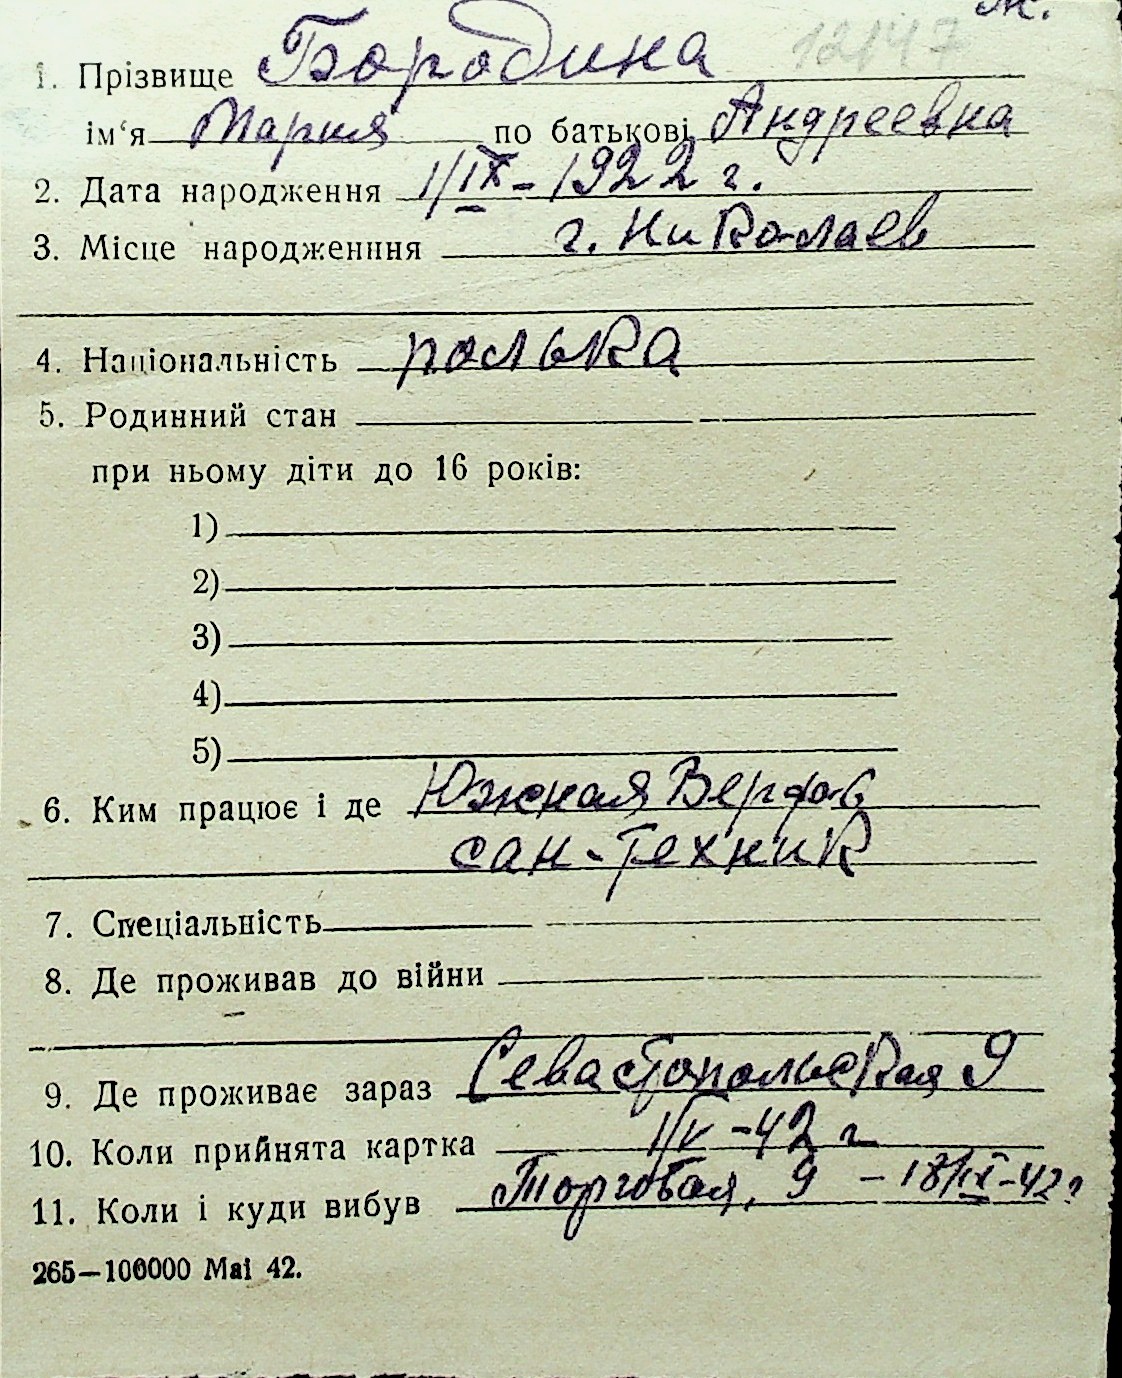 ж.
12147
1. Прізвище Бородина
ім‘я Мария по батькові Андреевна
2. Дата народження 1/IX - 1922 г.
3. Місце народженння г. Николаев
4. Національність полька
5. Родинний стан
при ньому діти до 16 років:
1)
2)
3)
4)
5)
6. Ким працює і де Южная Верфь
сан-техник
7. Спеціальність
8. Де проживав до війни
9. Де проживає зараз Севастопольская 9
10. Коли прийнята картка 1/V - 42 г
11. Коли і куди вибув Торговая, 9 - 18/IX - 42 г
265—100000 Mai 42.